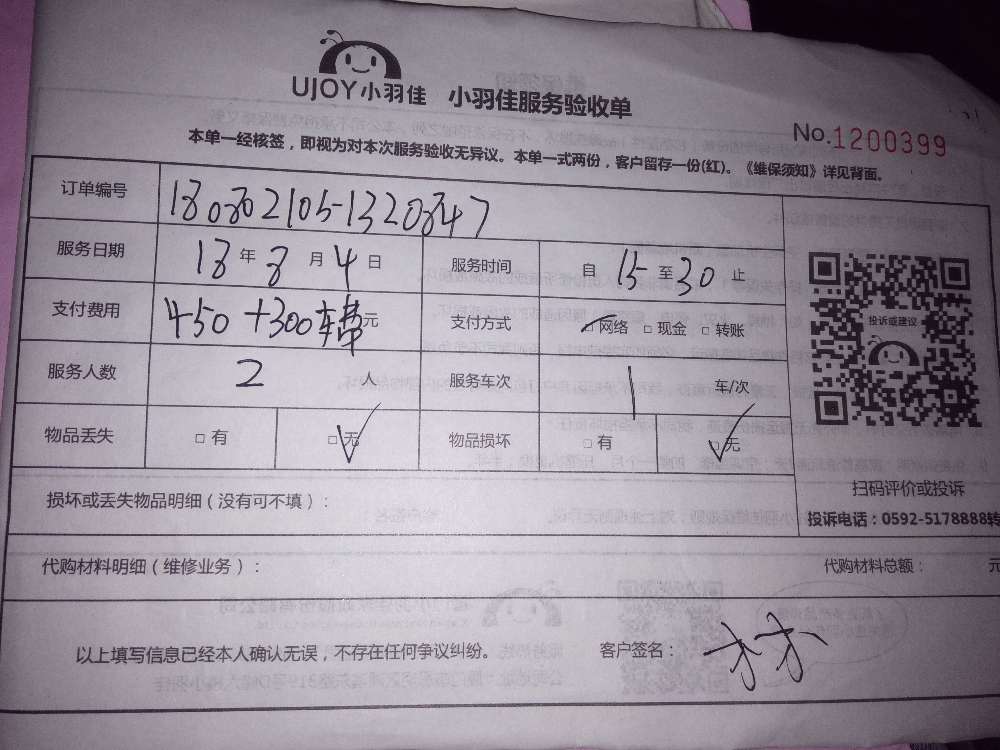 UJOY小羽佳 小羽佳服务验收单
No.1200399
本单一经核签，即视为对本次服务验收无异议。本单一式两份，客户留存一份(红)。《维保须知》详见背面。
订单编号 180802105-1320847
服务日期 18年8月4日 服务时间 自15至30止
支付费用 450+300车费元 支付方式 ☑网络 □现金 □转账
投诉或建议
服务人数 2人 服务车次 1车/次
物品丢失 □有 ☑无 物品损坏 □有 ☑无
扫码评价或投诉
损坏或丢失物品明细（没有可不填）：
投诉电话：0592-5178888转
代购材料明细（维修业务）： 代购材料总额： 元
以上填写信息已经本人确认无误，不存在任何争议纠纷。 客户签名：